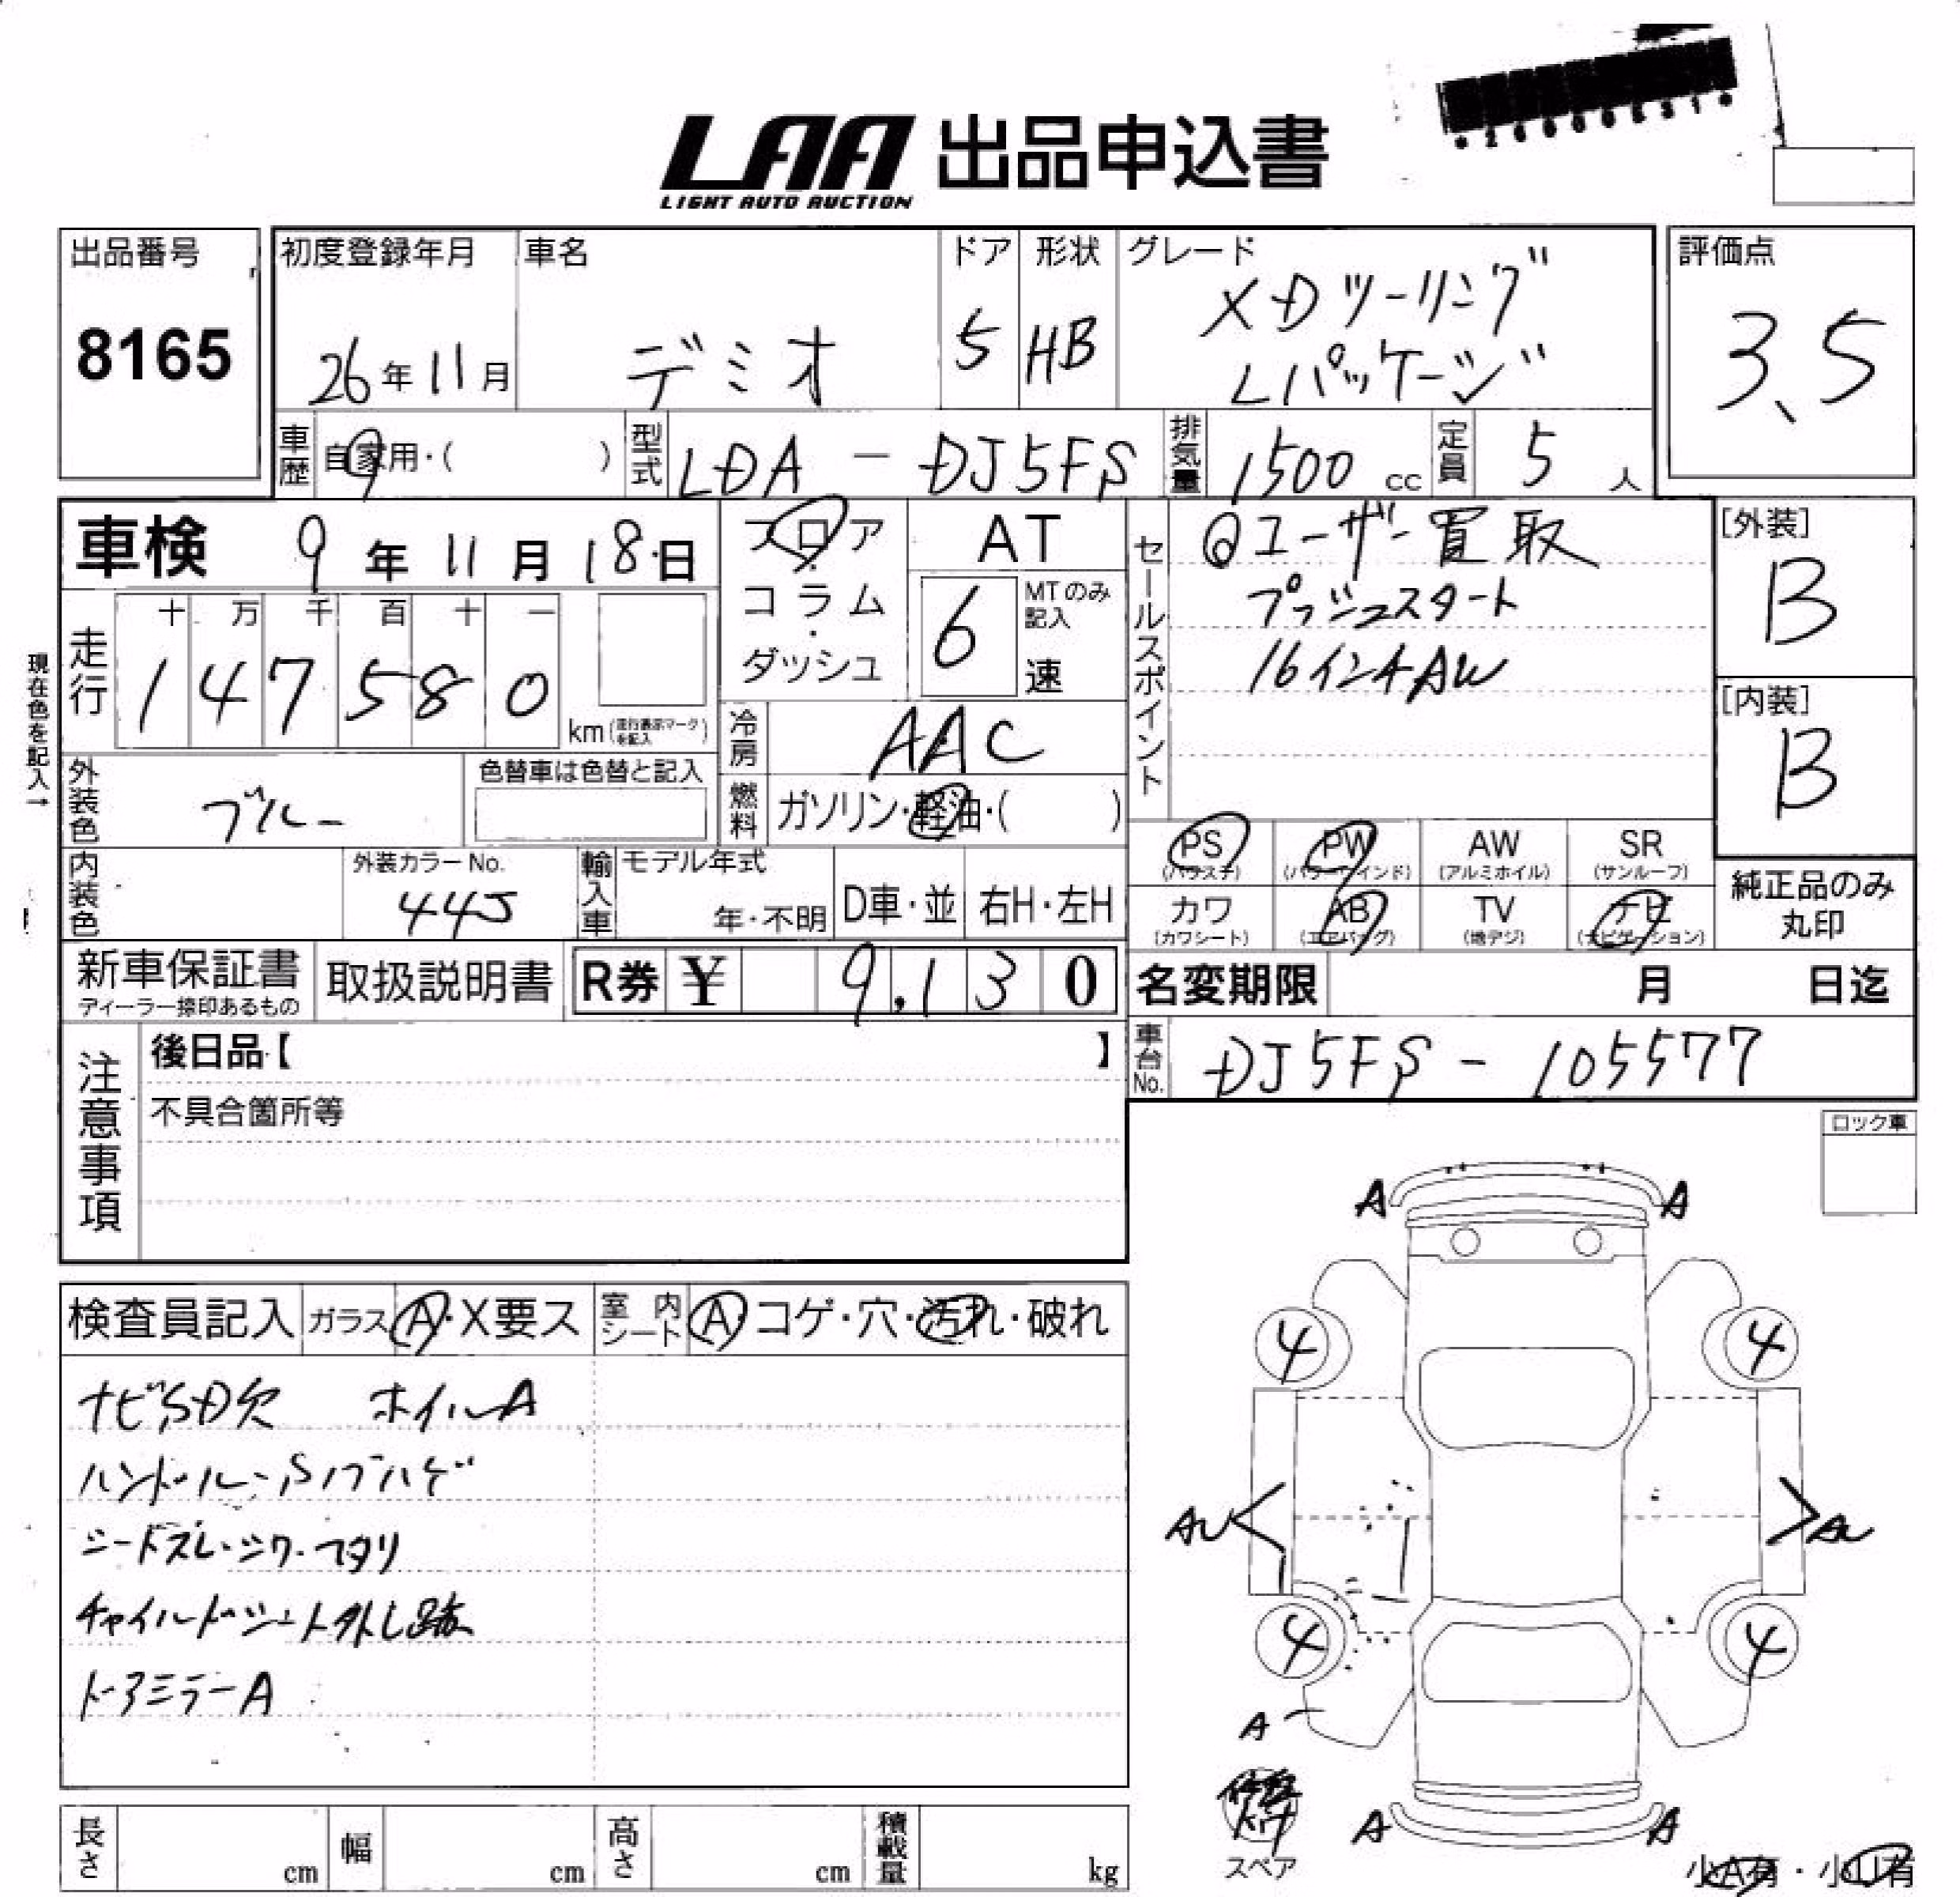 LAA 出品申込書
LIGHT AUTO AUCTION
出品番号
8165
初度登録年月
26年11月
車名
デミオ
ドア
5
形状
HB
グレード
XDツーリング
Lパッケージ
評価点
3.5
車歴
自家用・( )
型式
LDA - DJ5FS
排気量
1500 cc
定員
5 人
車検 9年11月18日
フロア
コラム
・
ダッシュ
AT
6
MTのみ
記入
速
セールスポイント
ユーザー買取
プッシュスタート
16インチAW
[外装]
B
[内装]
B
現在色を記入→
走行
十 万 千 百 十 一
1 4 7 5 8 0
km(走行表示マークを記入)
冷房
AAC
外装色
ブルー
色替車は色替と記入
燃料
ガソリン・軽油・( )
内装色
外装カラーNo.
44J
輸入車
モデル年式
年・不明
D車・並
右H・左H
PS
(パワステ)
PW
(パワーウインド)
AW
(アルミホイル)
SR
(サンルーフ)
カワ
(カワシート)
AB
(エアバッグ)
TV
(地デジ)
ナビ
(ナビゲーション)
純正品のみ
丸印
新車保証書
ディーラー捺印あるもの
取扱説明書
R券 ¥ 9,130
名変期限 月 日迄
注意事項
後日品【 】
不具合箇所等
車台No.
DJ5FS - 105577
ロック車
検査員記入
ガラス
A・X要ス
室内シート
A・コゲ・穴・汚れ・破れ
ナビSD欠 ホイルA
ハンドル・Sノブハゲ
シートスレ・シワ・ヘタリ
チャイルドシート外し跡
ドアミラーA
A A
4 4
4 4
A
A A
スペア
小A有・小U有
長さ cm
幅 cm
高さ cm
積載量 kg